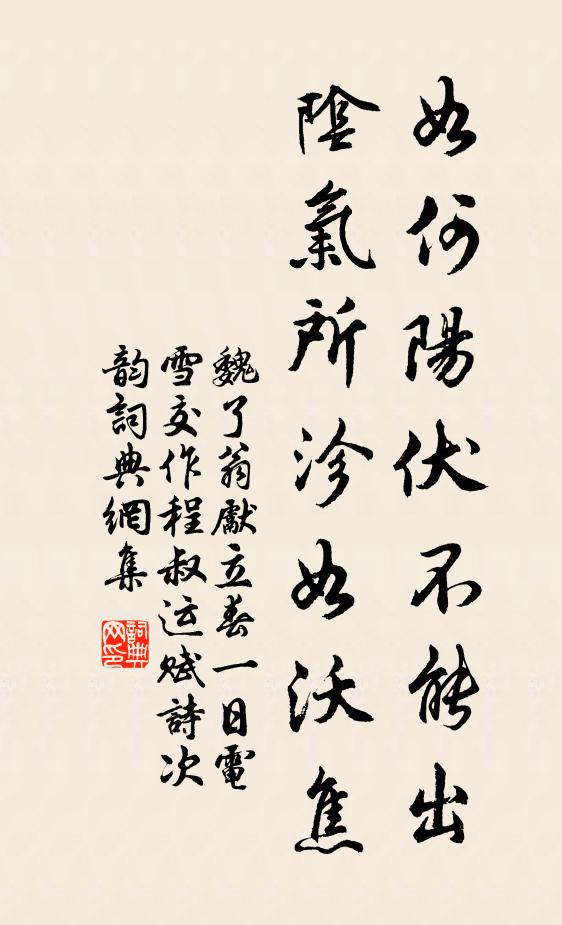 如何陽伏不能出
陰氣所沴如沃焦
魏了翁獻立春一日電
雪交作程叔运賦詩次
韵詞典網集
詞典网印